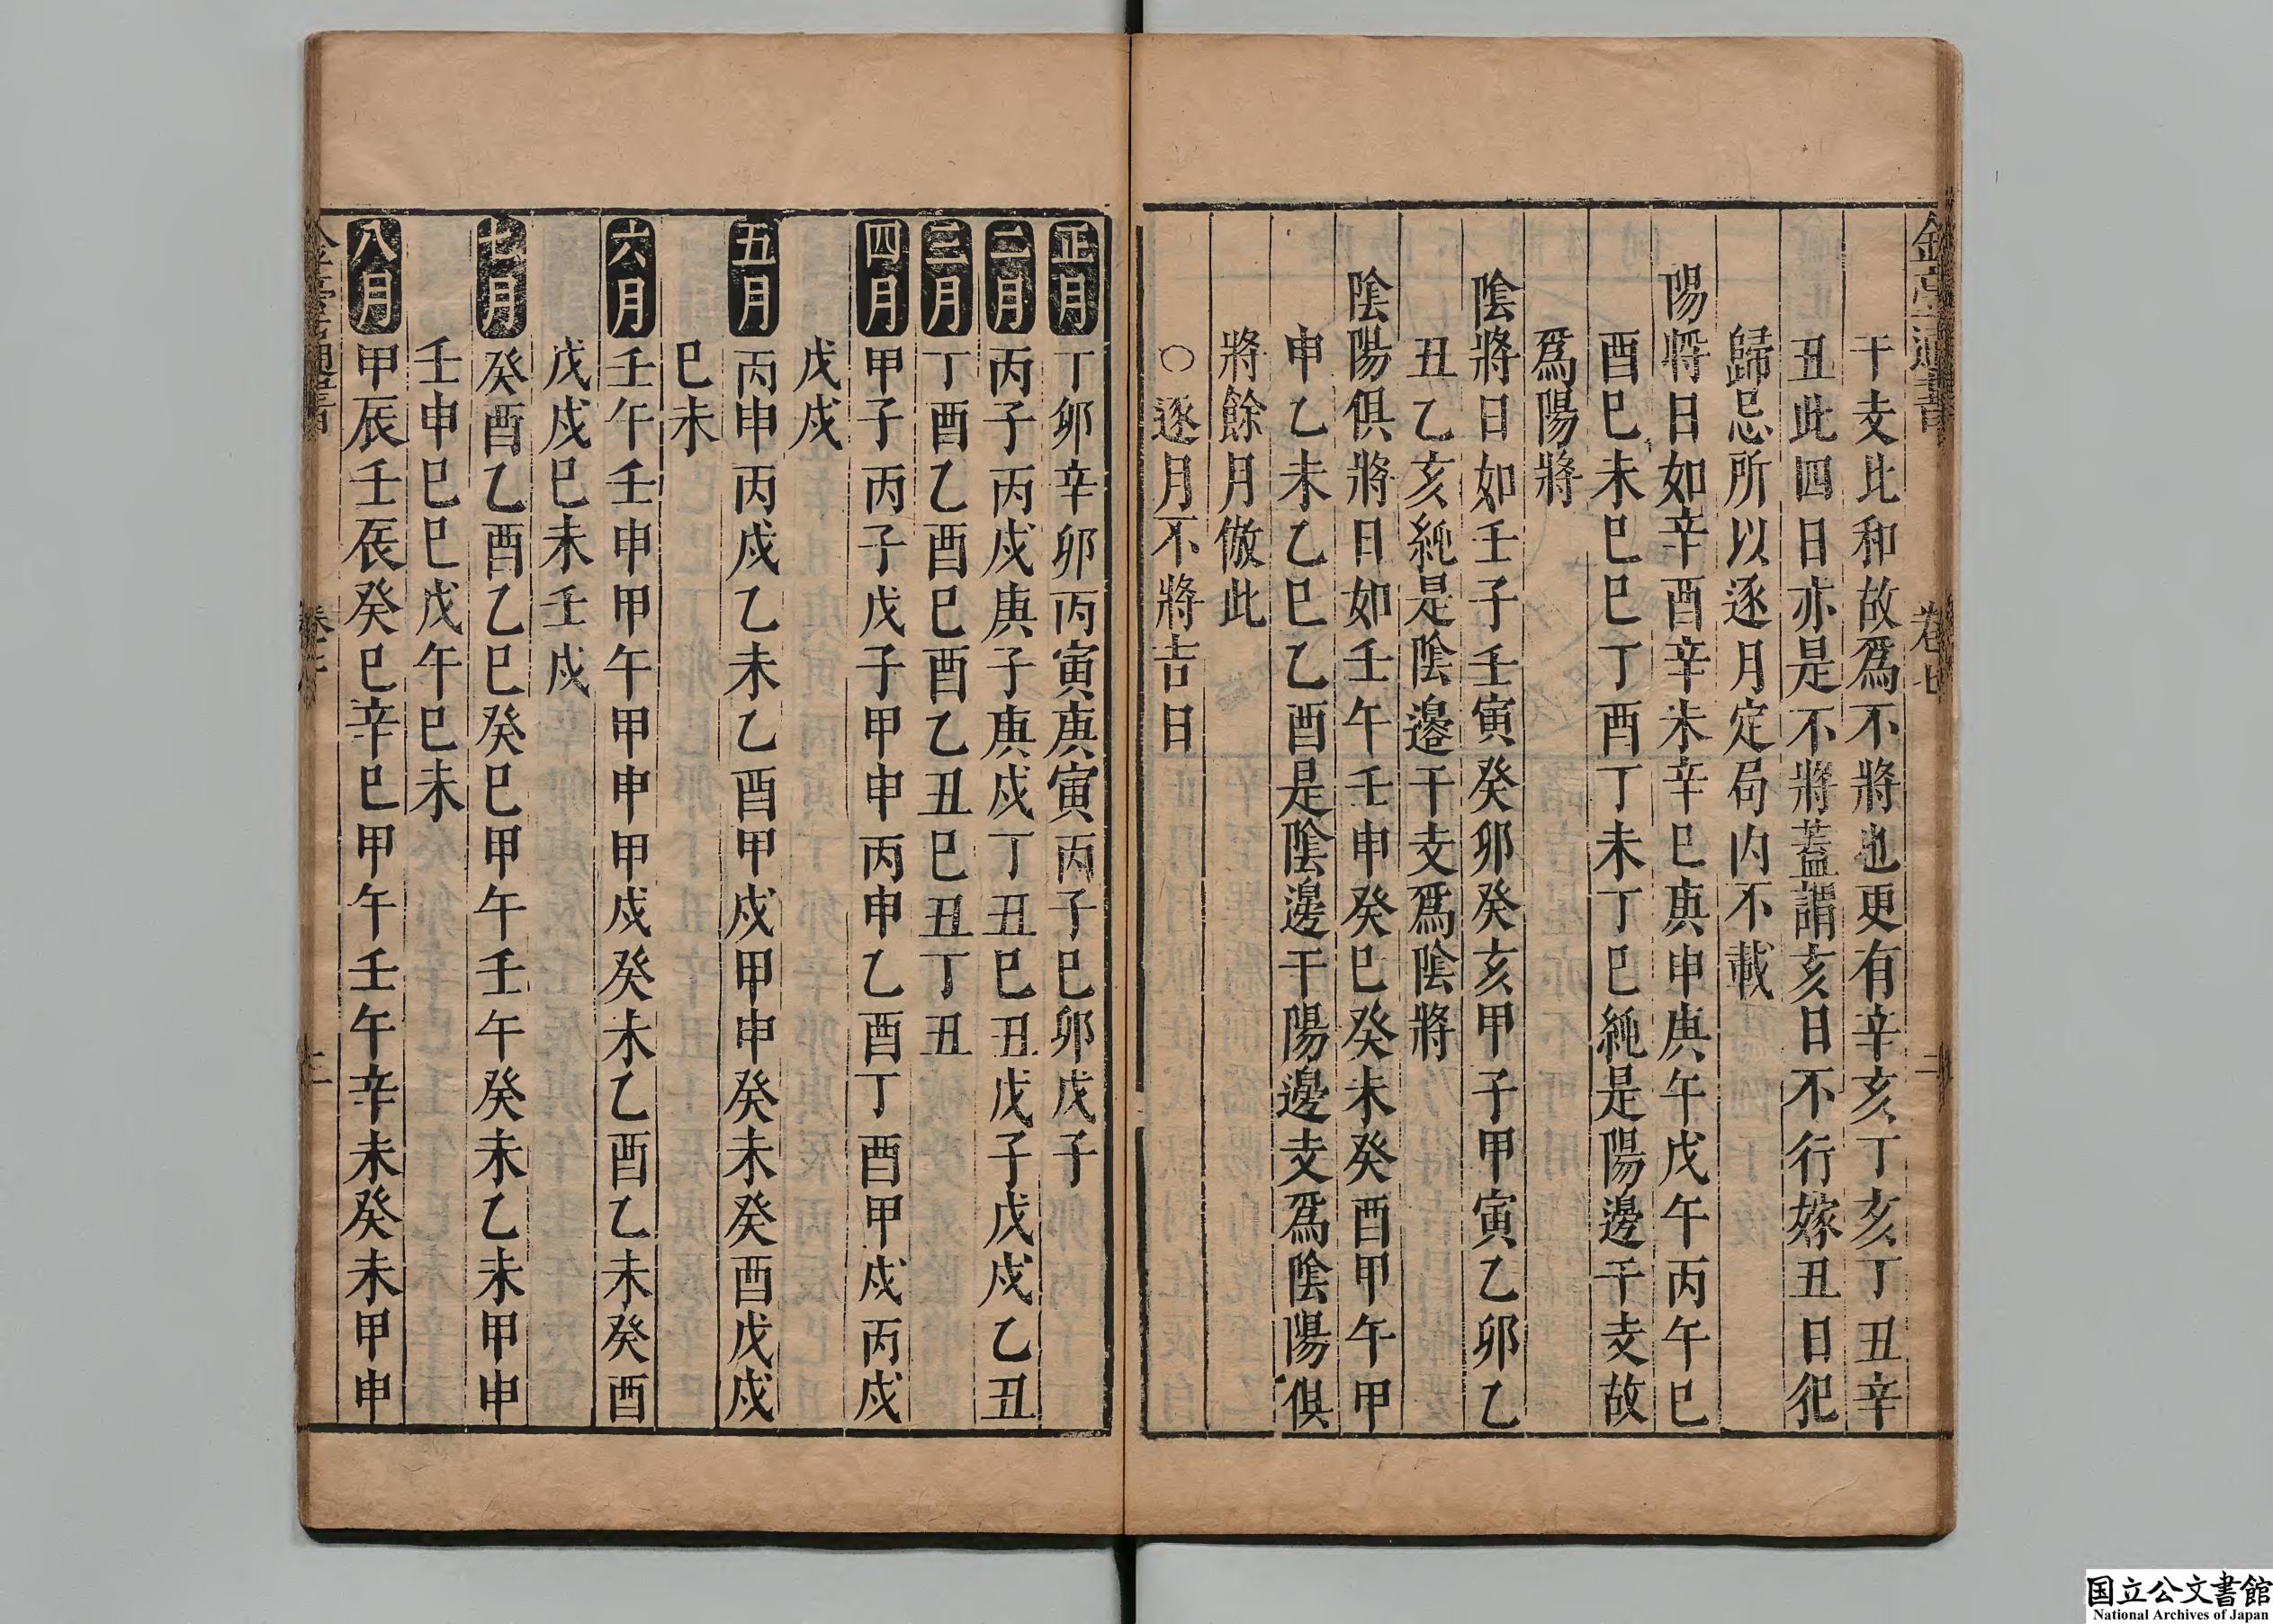 卷七
干支比和故爲不將也更有辛亥丁亥丁丑辛
丑此四日亦是不將蓋謂亥日不行嫁丑日犯
歸忌所以逐月定局内不載
陽將日如辛酉辛未辛巳庚申庚午戊午丙午巳
酉巳未巳巳丁酉丁未丁巳純是陽邊干支故
爲陽將
陰將日如壬子壬寅癸卯癸亥甲子甲寅乙卯乙
丑乙亥純是陰邊干支爲陰將
陰陽俱將日如壬午壬申癸巳癸未癸酉甲午甲
申乙未乙巳乙酉是陰邊干陽邊支爲陰陽俱
將餘月倣此
○逐月不將吉日
正月丁卯辛卯丙寅庚寅丙子巳卯戊子
二月丙子丙戌庚子庚戌丁丑巳丑戊子戊戌乙丑
三月丁酉乙酉巳酉乙丑巳丑丁丑
四月甲子丙子戊子甲申丙申乙酉丁酉甲戌丙戌
戊戌
五月丙申丙戌乙未乙酉甲戌甲申癸未癸酉戊戌
巳未
六月壬午壬申甲午甲申甲戌癸未乙酉乙未癸酉
戊戌巳未壬戌
七月癸酉乙酉乙巳癸巳甲午壬午癸未乙未甲申
壬申巳巳戊午巳未
八月甲辰壬辰癸巳辛巳甲午壬午辛未癸未甲申
国立公文書館
National Archives of Japan